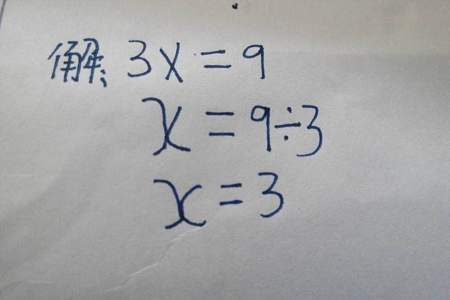 解、3x=9
x=9÷3
x=3